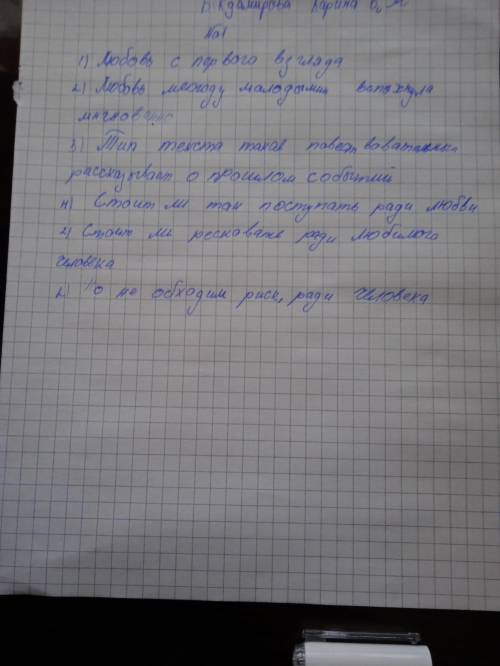 Карина
№1
1) Любовь с первого взгляда
2) Любовь между молодыми вспыхнула
мгновенно
3) Тип текста такое
рассказывает о прошлом событий
4) Стоит ли так поступать ради любви
2) Стоит ли ради любимого
человека
не обходим риск, ради человека